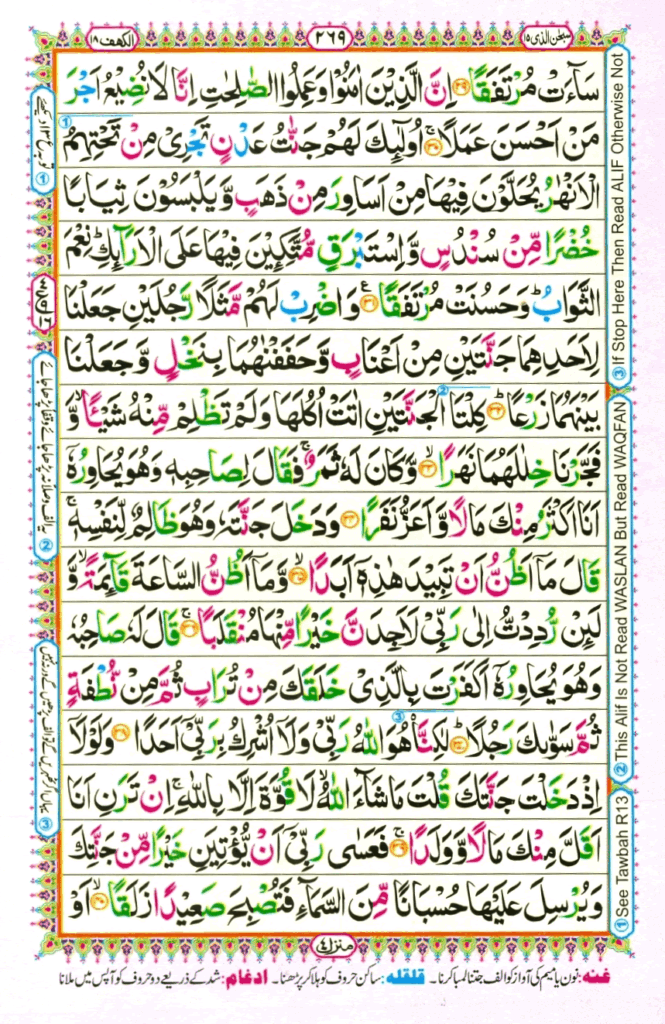 سبحٰن الذی ۱۵
۲۶۹
الكهف ۱۸
سَآءَتْ مُرْتَفَقًا ﴿۲۹﴾ اِنَّ الَّذِيْنَ اٰمَنُوْا وَعَمِلُوا الصّٰلِحٰتِ اِنَّا لَا نُضِيْعُ اَجْرَ
مَنْ اَحْسَنَ عَمَلًا ﴿۳۰﴾ اُولٰٓئِكَ لَهُمْ جَنّٰتُ عَدْنٍ تَجْرِيْ مِنْ تَحْتِهِمُ
الْاَنْهٰرُ يُحَلَّوْنَ فِيْهَا مِنْ اَسَاوِرَ مِنْ ذَهَبٍ وَّ يَلْبَسُوْنَ ثِيَابًا
خُضْرًا مِّنْ سُنْدُسٍ وَّ اِسْتَبْرَقٍ مُّتَّكِـِٕيْنَ فِيْهَا عَلَى الْاَرَآئِكِ ؕ نِعْمَ
الثَّوَابُ ؕ وَ حَسُنَتْ مُرْتَفَقًا ﴿۳۱﴾ وَ اضْرِبْ لَهُمْ مَّثَلًا رَّجُلَيْنِ جَعَلْنَا
لِاَحَدِهِمَا جَنَّتَيْنِ مِنْ اَعْنَابٍ وَّ حَفَفْنٰهُمَا بِنَخْلٍ وَّ جَعَلْنَا
بَيْنَهُمَا زَرْعًا ﴿۳۲﴾ كِلْتَا الْجَنَّتَيْنِ اٰتَتْ اُكُلَهَا وَ لَمْ تَظْلِمْ مِّنْهُ شَيْـًٔا ۙ وَّ
فَجَّرْنَا خِلٰلَهُمَا نَهَرًا ﴿۳۳﴾ وَّ كَانَ لَهٗ ثَمَرٌ ۚ فَقَالَ لِصَاحِبِهٖ وَ هُوَ يُحَاوِرُهٗۤ
اَنَا اَكْثَرُ مِنْكَ مَالًا وَّ اَعَزُّ نَفَرًا ﴿۳۴﴾ وَ دَخَلَ جَنَّتَهٗ وَ هُوَ ظَالِمٌ لِّنَفْسِهٖ ۚ
قَالَ مَاۤ اَظُنُّ اَنْ تَبِيْدَ هٰذِهٖۤ اَبَدًا ﴿۳۵﴾ وَّ مَاۤ اَظُنُّ السَّاعَةَ قَآئِمَةً ۙ وَّ
لَئِنْ رُّدِدْتُّ اِلٰى رَبِّيْ لَاَجِدَنَّ خَيْرًا مِّنْهَا مُنْقَلَبًا ﴿۳۶﴾ قَالَ لَهٗ صَاحِبُهٗ
وَ هُوَ يُحَاوِرُهٗۤ اَكَفَرْتَ بِالَّذِيْ خَلَقَكَ مِنْ تُرَابٍ ثُمَّ مِنْ نُّطْفَةٍ
ثُمَّ سَوّٰىكَ رَجُلًا ﴿۳۷﴾ لٰكِنَّا۠ هُوَ اللّٰهُ رَبِّيْ وَ لَاۤ اُشْرِكُ بِرَبِّيْۤ اَحَدًا ﴿۳۸﴾ وَ لَوْلَاۤ
اِذْ دَخَلْتَ جَنَّتَكَ قُلْتَ مَا شَآءَ اللّٰهُ ۙ لَا قُوَّةَ اِلَّا بِاللّٰهِ ۚ اِنْ تَرَنِ اَنَا
اَقَلَّ مِنْكَ مَالًا وَّ وَلَدًا ﴿۳۹﴾ فَعَسٰى رَبِّيْۤ اَنْ يُّؤْتِيَنِ خَيْرًا مِّنْ جَنَّتِكَ
وَ يُرْسِلَ عَلَيْهَا حُسْبَانًا مِّنَ السَّمَآءِ فَتُصْبِحَ صَعِيْدًا زَلَقًا ﴿۴۰﴾ اَوْ
منزل ۴
غنه: نون یا میم کی آواز کو الف جتنا لمبا کرنا۔ قلقله: ساکن حروف کو ہلا کر پڑھنا۔ ادغام: شد کے ذریعے دو حروف کو آپس میں ملانا
① See Tawbah R13
② This Alif Is Not Read WASLAN But Read WAQFAN
③ If Stop Here Then Read ALIF Otherwise Not